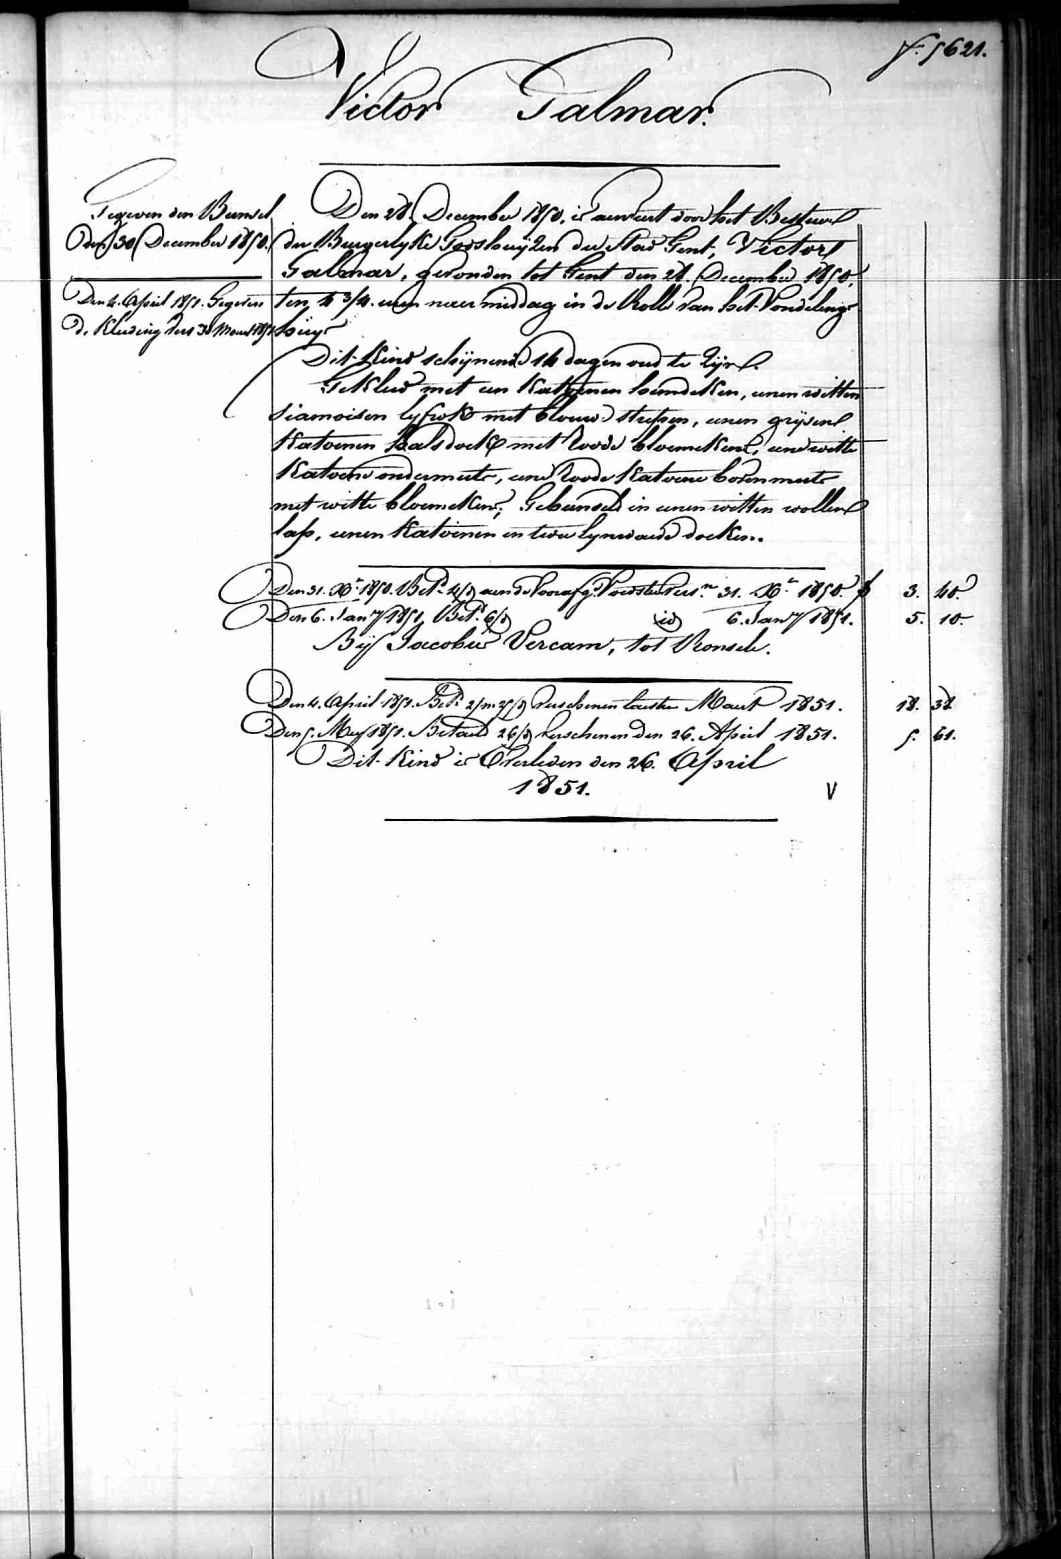 f.º 5621.
Victor Galmar.
Gegeven den Bunsel
den 30 December 1850.
Den 4. April 1851. Gegeven
de Kleeding Vers 3 Maend
Den 28 December 1850. is aenveert door het Bestuer
der Burgerlyke Godshuyzen der Stad Gent, Victor
Galmar, gevonden tot Gent den 28. December 1850,
ten 4 3/4. uren naer middag in de Rolle van het Vondeling-
huys
Dit Kind schynende 14 dagen oud te zyn.
Gekleed met een Katoenen hemdeken, eenen witten
Siamoisen lyfrok met blouwe strepen, eenen gryzen
Katoenen halsdoek met roode bloemekens, eene witte
Katoene ondermuts, eene roode Katoene bovenmuts
met witte bloemekens; Gebunseld in eenen witten wollen
lap, eenen Katoenen en twee lynwaede doeken..
Den 31. Xbr 1850. Betd. 4/d aen de Voorafg. Voedster vers.n 31. Xbr 1850. f 3. 40.
Den 6. Jany 1851, Betd. 6/d id 6. Jany 1851. 5. 10.
By Jacobus Vercam, tot Ronsele.
Den 4. April 1851. Betd. 2/m 25/d verschenen laesten Maert 1851. 18. 38
Den 5. Mey 1851. Betaeld 26/d verschenen den 26. April 1851. 5. 61.
Dit Kind is Overleden den 26. April
1851. V